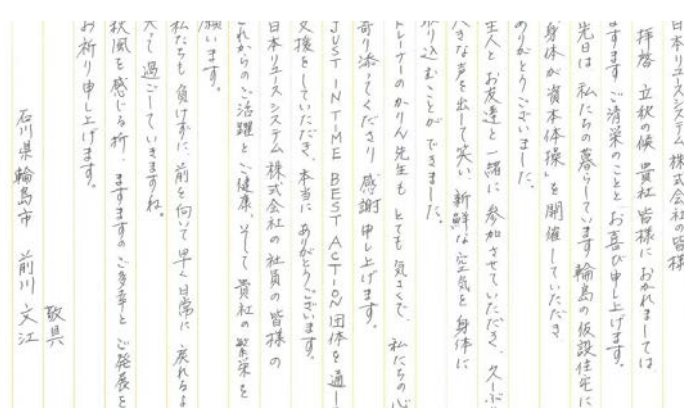 日本リユースシステム株式会社の皆様
拝啓 立秋の候 貴社皆様におかれましては
ますます ご清栄のこととお喜び申し上げます。
先日は 私たちの暮らしています輪島の仮設住宅に
お身体が資本体操」を開催していただき
ありがとうございました。
主人とお友達と一緒に参加させていただき、久しぶ
大きな声を出して笑い、新鮮な空気を身体に
取り込むことができました。
トレーナーのかりん先生も とても気さくで、私たちの心
寄り添ってくださり感謝申し上げます。
JUST IN TIME BEST ACTION団体を通し
支援をしていただき、本当にありがとうございます。
日本リユースシステム株式会社の社員の皆様の
これからのご活躍とご健康、そして貴社の繁栄を
願います。
私たちも負けずに、前を向いて早く日常に戻れるよ
笑って過ごしていきますね。
秋風を感じる折、ますますのご多幸とご発展を
お祈り申し上げます。
敬具
石川県輪島市 前川文江